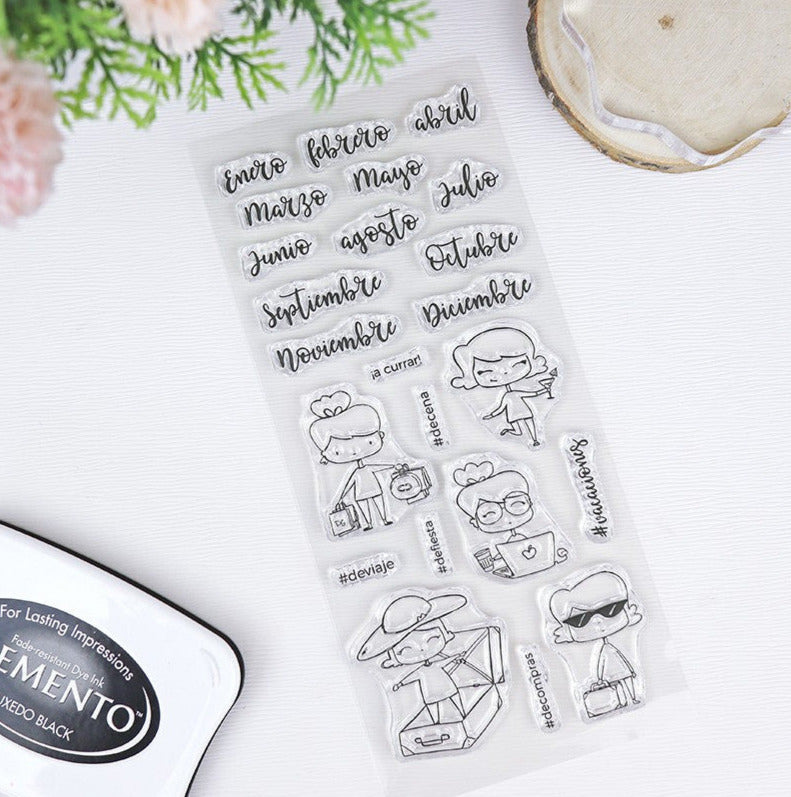 Enero
febrero
abril
Marzo
Mayo
Julio
Junio
agosto
Octubre
Septiembre
Diciembre
Noviembre
¡a currar!
#decena
#vacaciones
DG
#defiesta
#deviaje
#decompras
For Lasting Impressions
Fade-resistant Dye Ink
EMENTO™
UXEDO BLACK